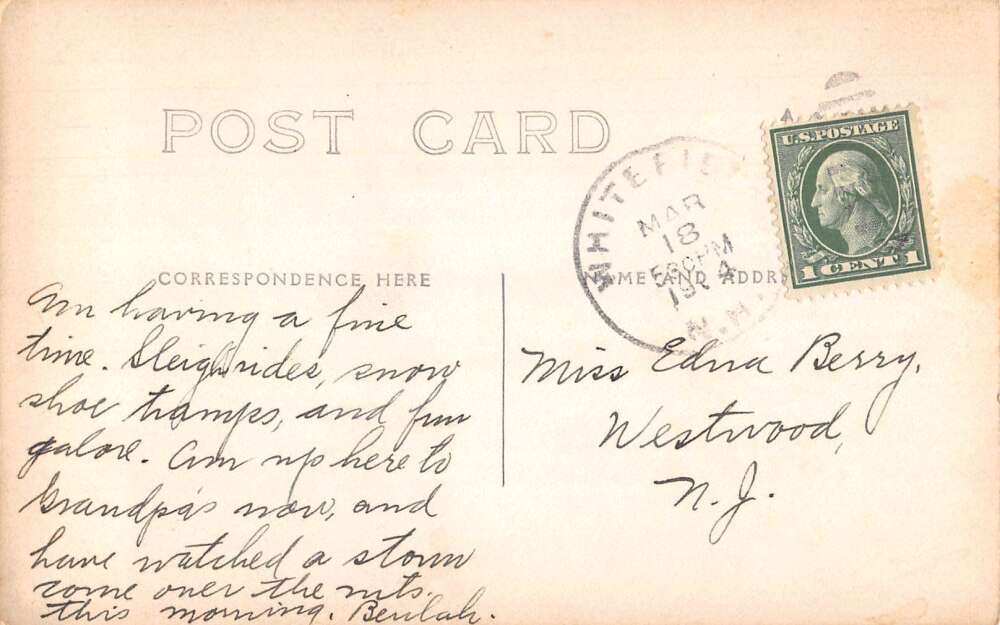 POST CARD
U.S. POSTAGE
1 CENT 1
WHITEFIE
MAR
18
530PM
N.H.
CORRESPONDENCE HERE
NAME AND ADDRE
Am having a fine
time. Sleighrides, snow
shoe tramps, and fun
galore. Am up here to
Grandpa's now, and
have watched a storm
come over the mts.
this morning. Beulah.
Miss Edna Berry,
Westwood,
N.J.